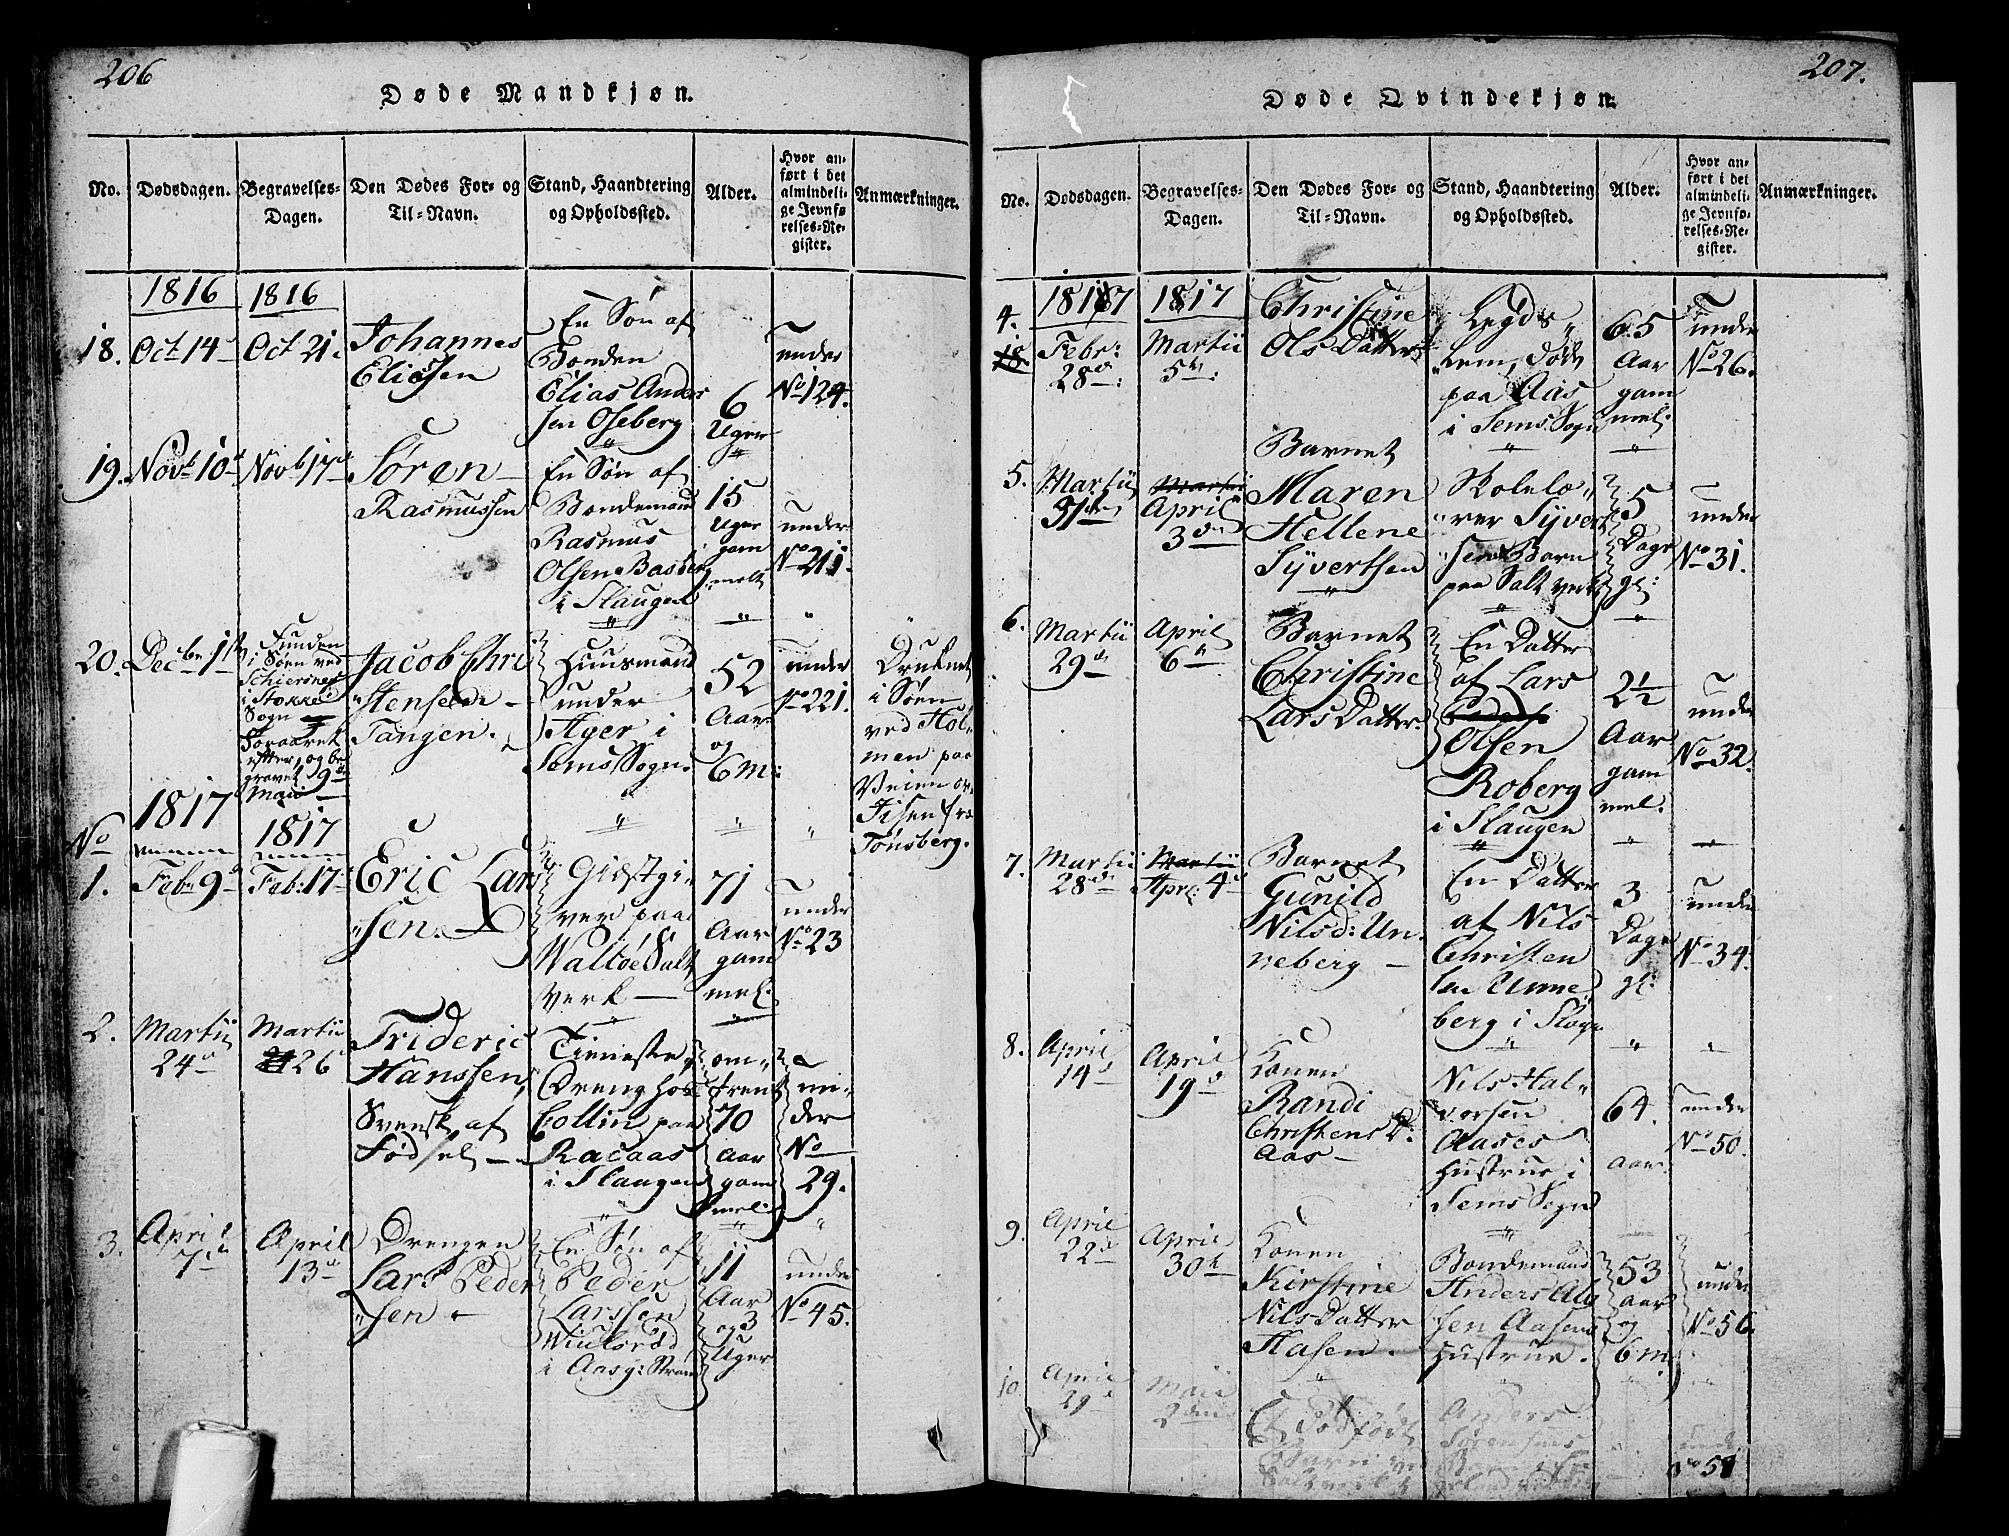 206
Døde Mandkjøn.
No. Dødsdagen. Begravelses-Dagen. Den Dødes For- og Til-Navn. Stand, Haandtering og Opholdssted. Alder. Hvor anført i det almindelige Jevnførelses-Register. Anmærkninger.
1816 1816
18. Oct. 14 Oct 21
Johannes
Eliesen
En Søn af
Bonden
Elias Ander
sen Oseberg
6
Uger
under
No 124.
19. Novb 10 Novb 17
Søren
Rasmussen
En Søn af
Bondemand
Rasmus
Olsen Basberg
i Slaugen
15
Uger
gam
melt
under
No 211.
20. Decbr 1st
Funden
i Søen ved
i Stokke
Sogn
Foraaret
efter, og be
gravet 9
Maii
Jacob Chri
stensen
Tangen.
Huusmand
under
Ager i
Sems Sogn.
52
Aar
og
6 m:
under
No 221.
Druknet
i Søen
ved Hol
men paa
Veien
fra
Tønsberg.
No 1817 1817
1. Feb. 9 Feb: 17
Eric Lar
sen.
Giestgi
ver paa
Walløe Salt
Verk
71
Aar
gam
mel.
under
No 23
2. Martii Martii
24 26
Frideric
Hanssen,
Svensk af
Fødsel
Tieneste
Dreng hos
Collin paa
i Slaugen
om
trent
70
aar
gam
mel
un
der
No
29.
3. April April
7 13
Drengen
Lars Peder
sen
En Søn af
Peder
Larssen
i Aasg: Strand
11
Aar
og 3
Uger
under
No 45.
207.
Døde Qvindekjøn.
No. Dødsdagen. Begravelses-Dagen. Den Dødes For- og Til-Navn. Stand, Haandtering og Opholdssted. Alder. Hvor anført i det almindelige Jevnførelses-Register. Anmærkninger.
1817 1817
4.
18.
Febr: Martii
28 5
Christine
Ols Datter
Legds
Lem, døde
paa Aas
i Sems Sogn
65
Aar
gam
mel.
under
No 26.
5. Martii Martii
31 April
3
Barnet
Maren
Hellene
Syvertsen
Skolelæ
rer Syvert
sens Barn
paa Saltverk
5
Dage
gl:
under
No 31.
6. Martii April
29 6
Barnet
Christine
Lars Datter
En Datter
af Lars
Olsen
Roberg
i Slaugen
2 1/2
Aar
gam
mel.
under
No 32.
7. Martii Martii
28 Apr: 4
Barnet
Gunild
Nilsd: Un
neberg
En Datter
af Nils
Christen
sen Unne
berg i
3
Dage
gl:
under
No 34.
8. April April
14 19
Konen
Randi
Christens D:
Aas
Nils Hal
vorsen
Aases
Hustrue i
Sems Sogn
64.
aar.
under
No 50.
9. April April
22 30
Konen
Kirstine
Nils Datter
Hasen.
Bondemand
Anders
sen
Hustrue.
53
aar
og
6 m
under
No 56.
10. April Maii
29 2
født
Anders
Sørensens
Barn
No 58